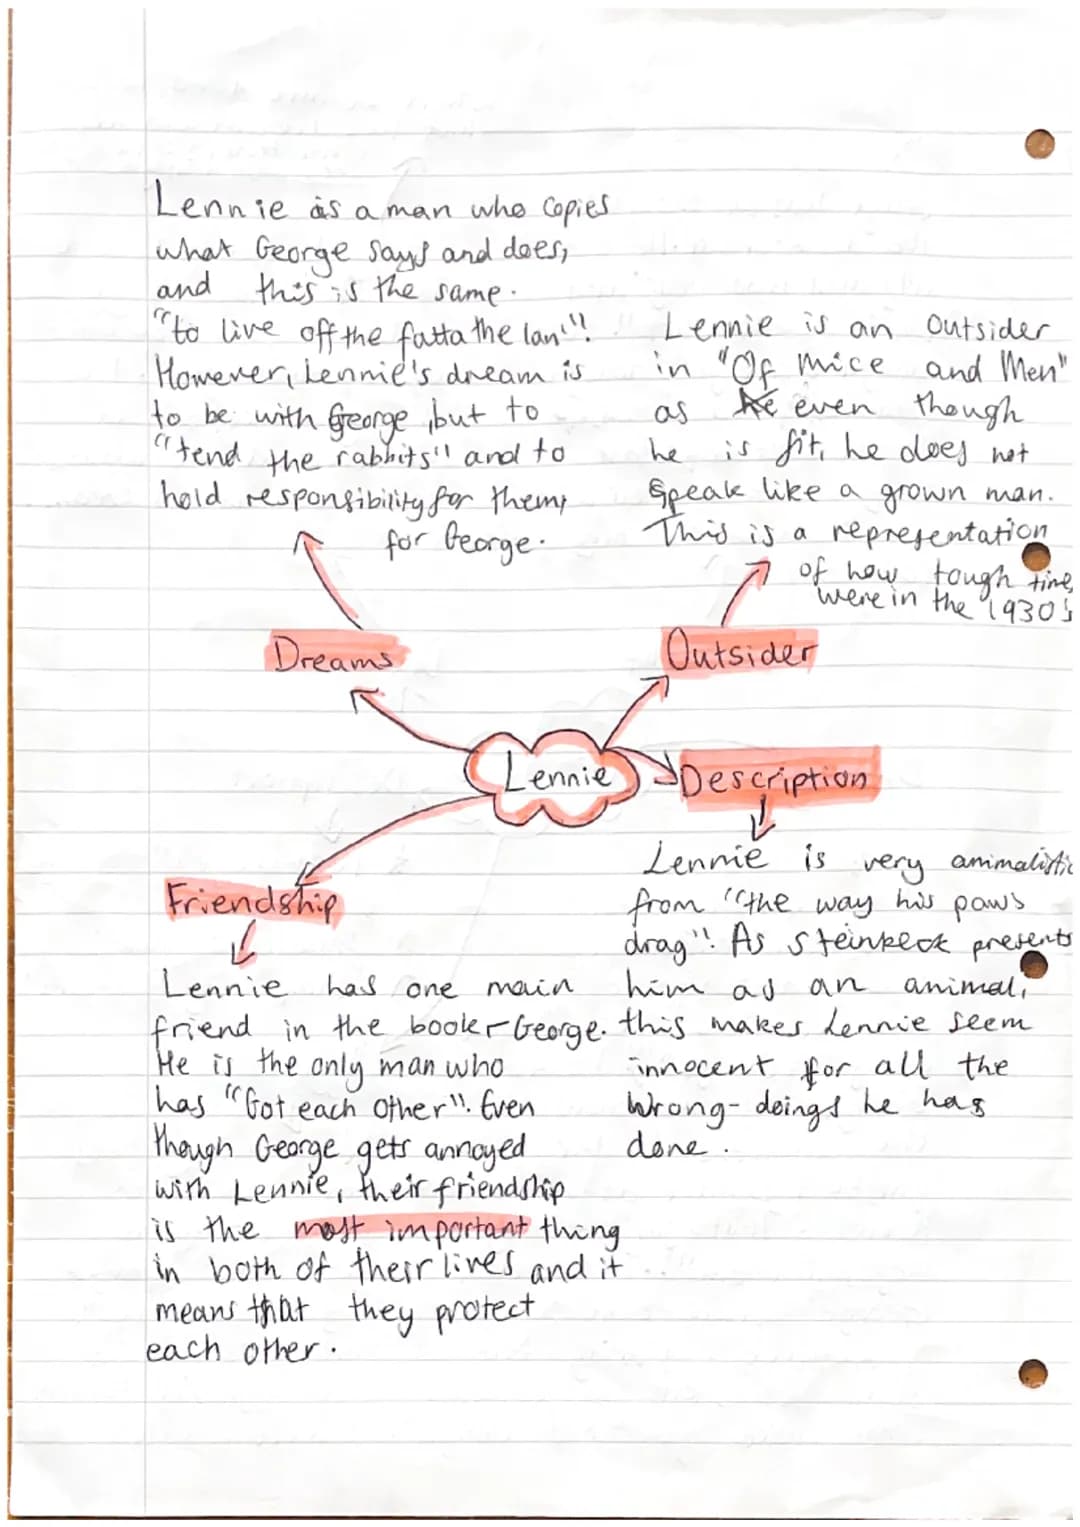 Lennie is a man who copies
what George says and does,
and this is the same.
"to live off the fatta the lan'".
However, Lennie's dream is
to be with George, but to
"tend the rabbits" and to
hold responsibility for them,
for George.
Lennie is an outsider
in "Of Mice and Men"
as he even though
he is fit, he does not
speak like a grown man.
This is a representation
of how tough times
were in the 1930's
Dreams
Outsider
Lennie
Description
Lennie is very animalistic
from "the way his paws
drag". As Steinbeck presents
him as an animal,
this makes Lennie seem
innocent for all the
wrong-doings he has
done.
Friendship
Lennie has one main
friend in the book - George.
He is the only man who
has "Got each other". Even
though George gets annoyed
with Lennie, their friendship
is the most important thing
in both of their lives and it
means that they protect
each other.